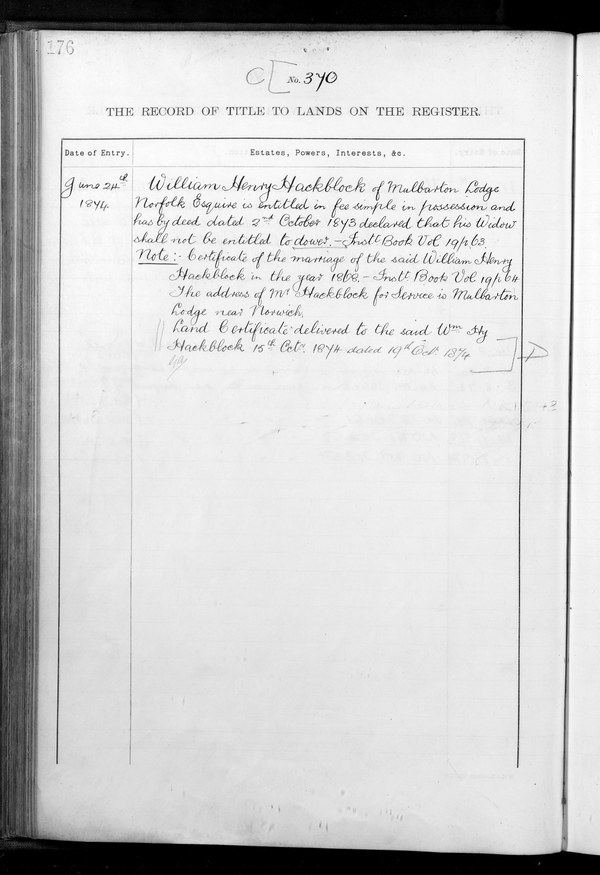 176
C[ No. 370
THE RECORD OF TITLE TO LANDS ON THE REGISTER
Date of Entry. Estates, Powers, Interests, &c.
June 24th William Henry Hackblock of Mulbarton Lodge
1874 Norfolk Esquire is entitled in fee simple in possession and
has by deed dated 2nd October 1873 declared that his Widow
shall not be entitled to dower. – Instt. Book Vol 19/p 63.
Note :- Certificate of the marriage of the said William Henry
Hackblock in the year 1868. – Instt. Book Vol 19/p 64
The address of Mr Hackblock for Service is Mulbarton
Lodge near Norwich.
Land Certificate delivered to the said Wm Hy
Hackblock 15th Octr. 1874 dated 19th Octr. 1874